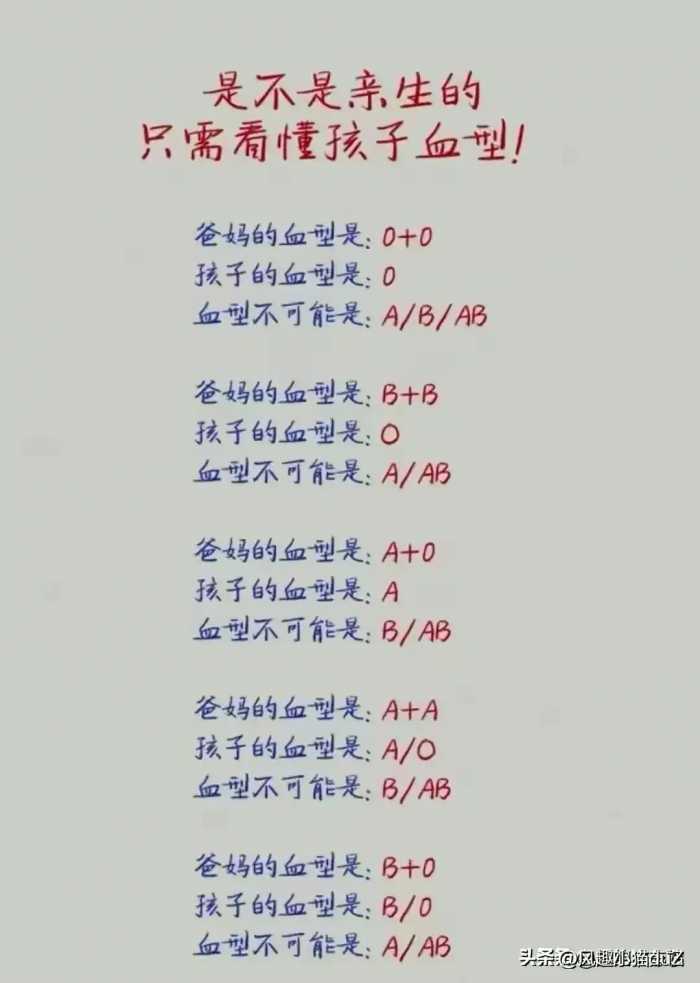 是不是亲生的
只需看懂孩子血型!
爸妈的血型是: O+O
孩子的血型是: O
血型不可能是: A/B/AB
爸妈的血型是: B+B
孩子的血型是: O
血型不可能是: A/AB
爸妈的血型是: A+O
孩子的血型是: A
血型不可能是: B/AB
爸妈的血型是: A+A
孩子的血型是: A/O
血型不可能是: B/AB
爸妈的血型是: B+O
孩子的血型是: B/O
血型不可能是: A/AB
头条@风趣小猫